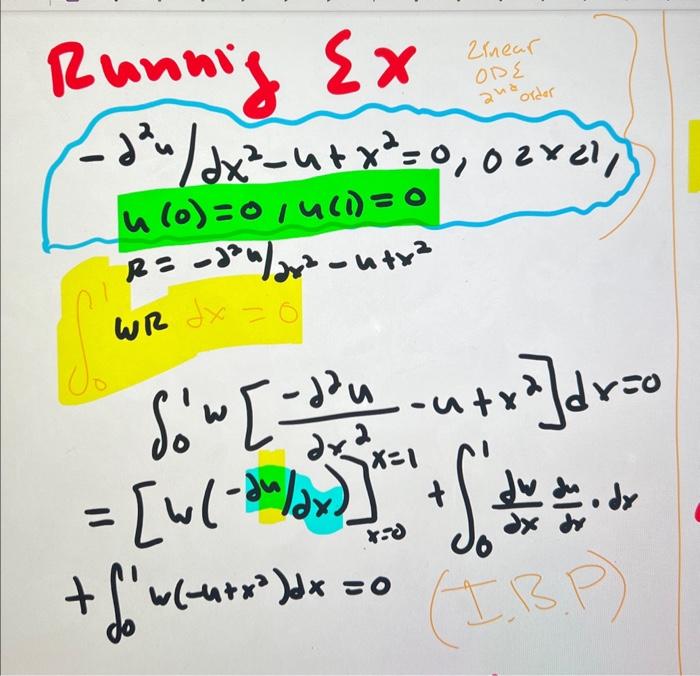 Runnig Ex
Linear
ODE
2nd order
-d²u/dx²-u+x²=0, 0<x<1,
u(0)=0, u(1)=0
R= -d²u/dx² -u+x²
∫₀¹ WR dx = 0
∫₀¹ w[-d²u/dx² -u+x²]dx=0
= [w(-du/dx)]ₓ₌₀ˣ⁼¹ + ∫₀¹ dw/dx du/dx · dx
+ ∫₀¹ w(-u+x²)dx = 0 (I.B.P)